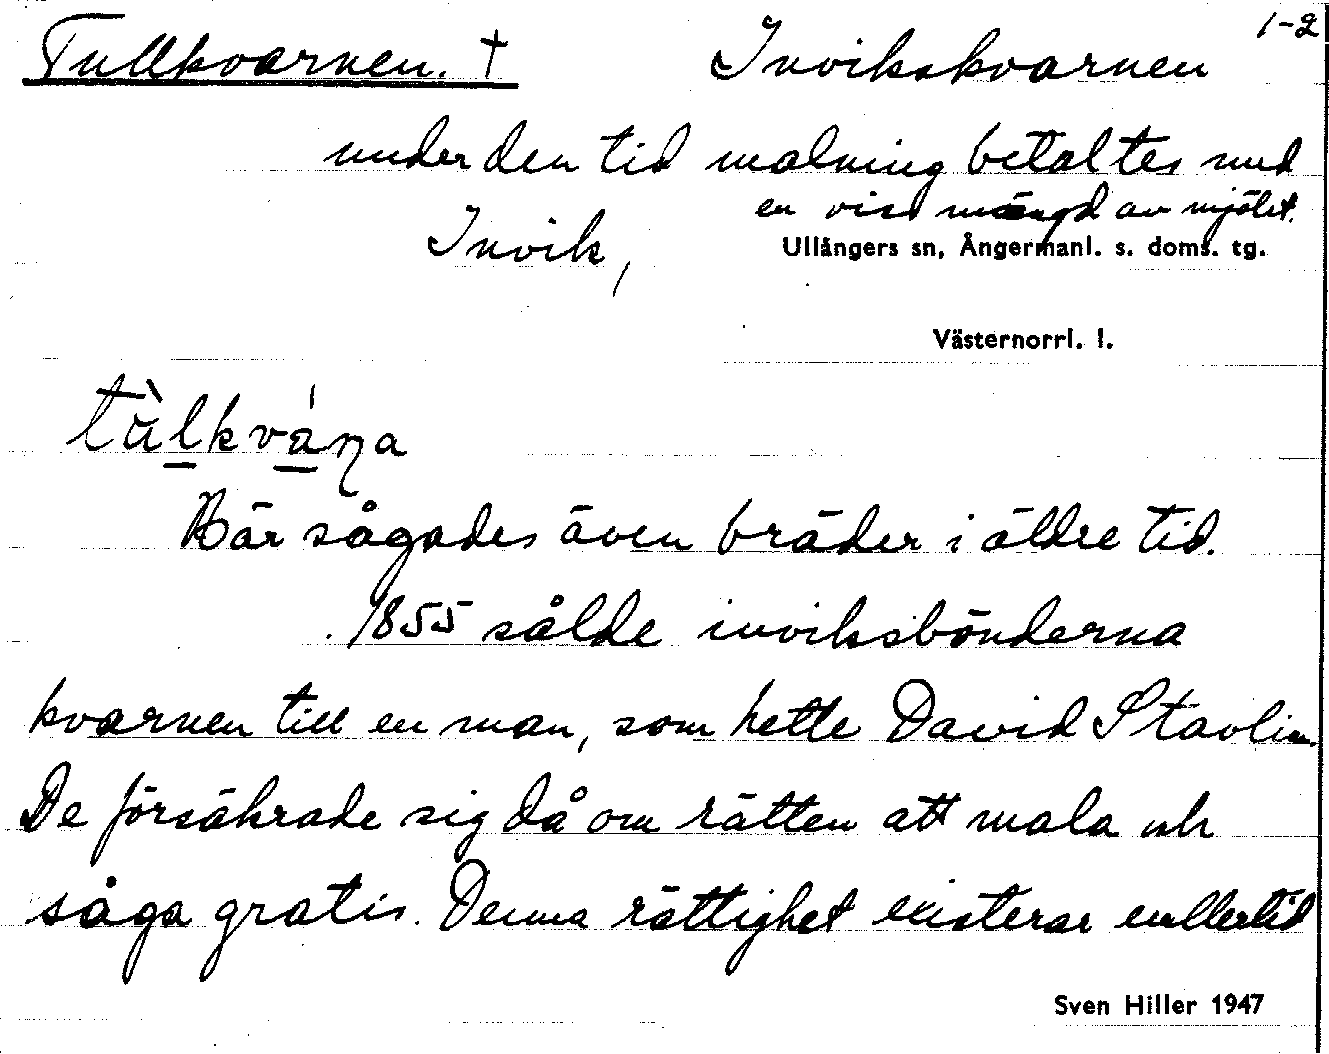 1-2
Tullkvarnen. † Invikskvarnen
under den tid malning betaltes med
en viss mängd av mjölet.
Invik, Ullångers sn, Ångermanl. s. doms. tg.
Västernorrl. l.
Här sågades även bräder i äldre tid.
1855 sålde inviksbönderna
kvarnen till en man, som hette David Stavlin.
De försäkrade sig då om rätten att mala och
såga gratis. Denna rättighet existerar emellertid
Sven Hiller 1947